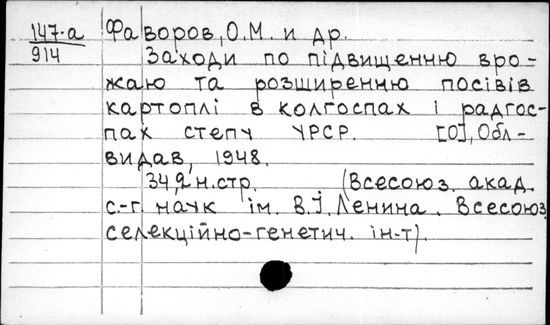 147-а Фаворов, О.М. и др.
914 Заходи по підвищенню вро-
жаю та розширенню посівів
картоплі в колгоспах і радгос-
пах степу УРСР. [О], Обл-
видав, 1948.
34,2 н.стр. (Всесоюз. акад.
с.-г. наук ім. В.І. Ленина. Всесоюз.
селекційно-генетич. ін-т).